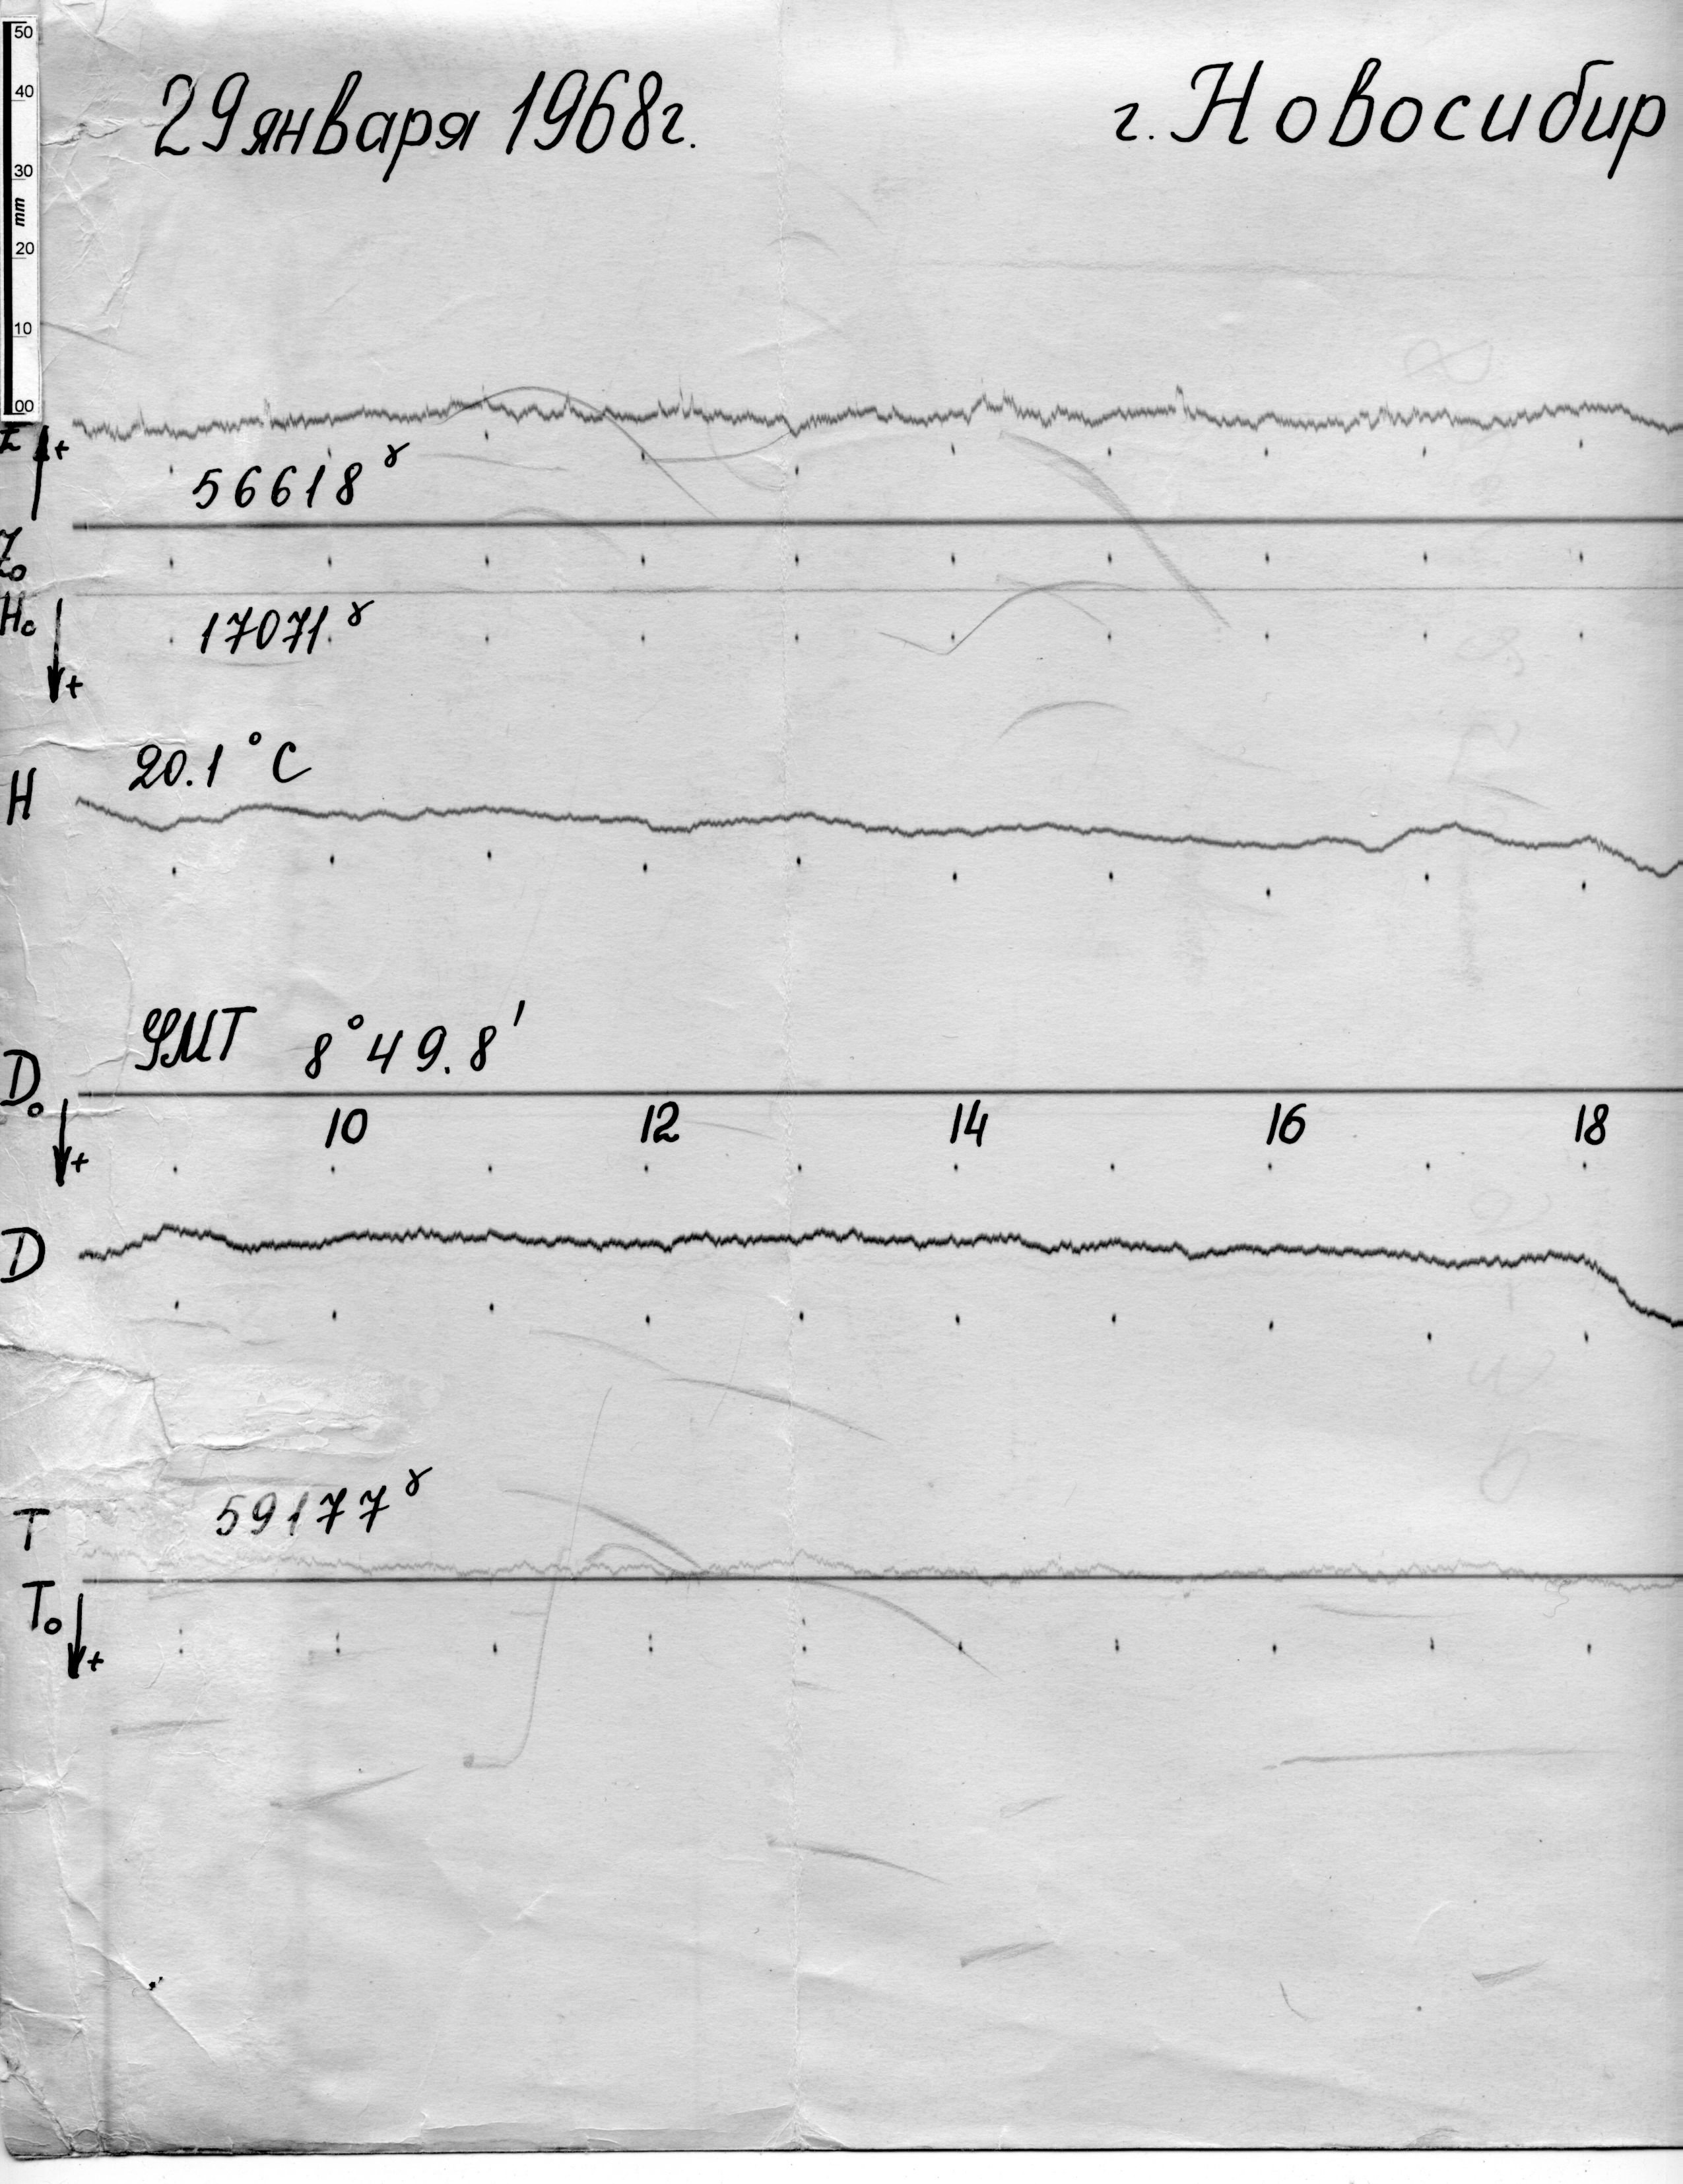 50
40
30
mm
20
10
00
29 января 1968г.
г. Новосибир
Z +
56618 γ
Z₀
H₀
17071 γ
+
20.1°C
H
8°49.8'
D₀
10 12 14 16 18
+
D
59177 γ
T
T₀
+